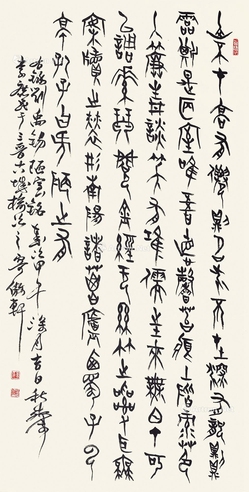 山不在高有仙則名水不在深有龍則
靈斯是陋室唯吾德馨苔痕上階綠草色
入簾青談笑有鴻儒往來無白丁可
以調素琴閱金經無絲竹之亂耳無
案牘之勞形南陽諸葛廬西蜀子雲
亭孔子曰何陋之有
劉禹錫陋室銘 甲午 月吉日秋聲
於三晉